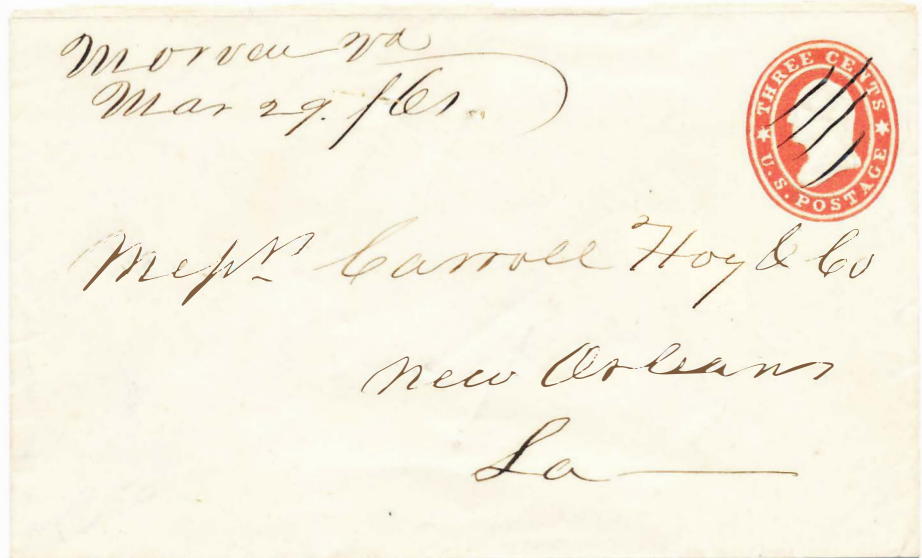 Morven Va
Mar 29. /61.
THREE CENTS
U.S. POSTAGE
Messrs Carroll Hoy & Co
New Orleans
La